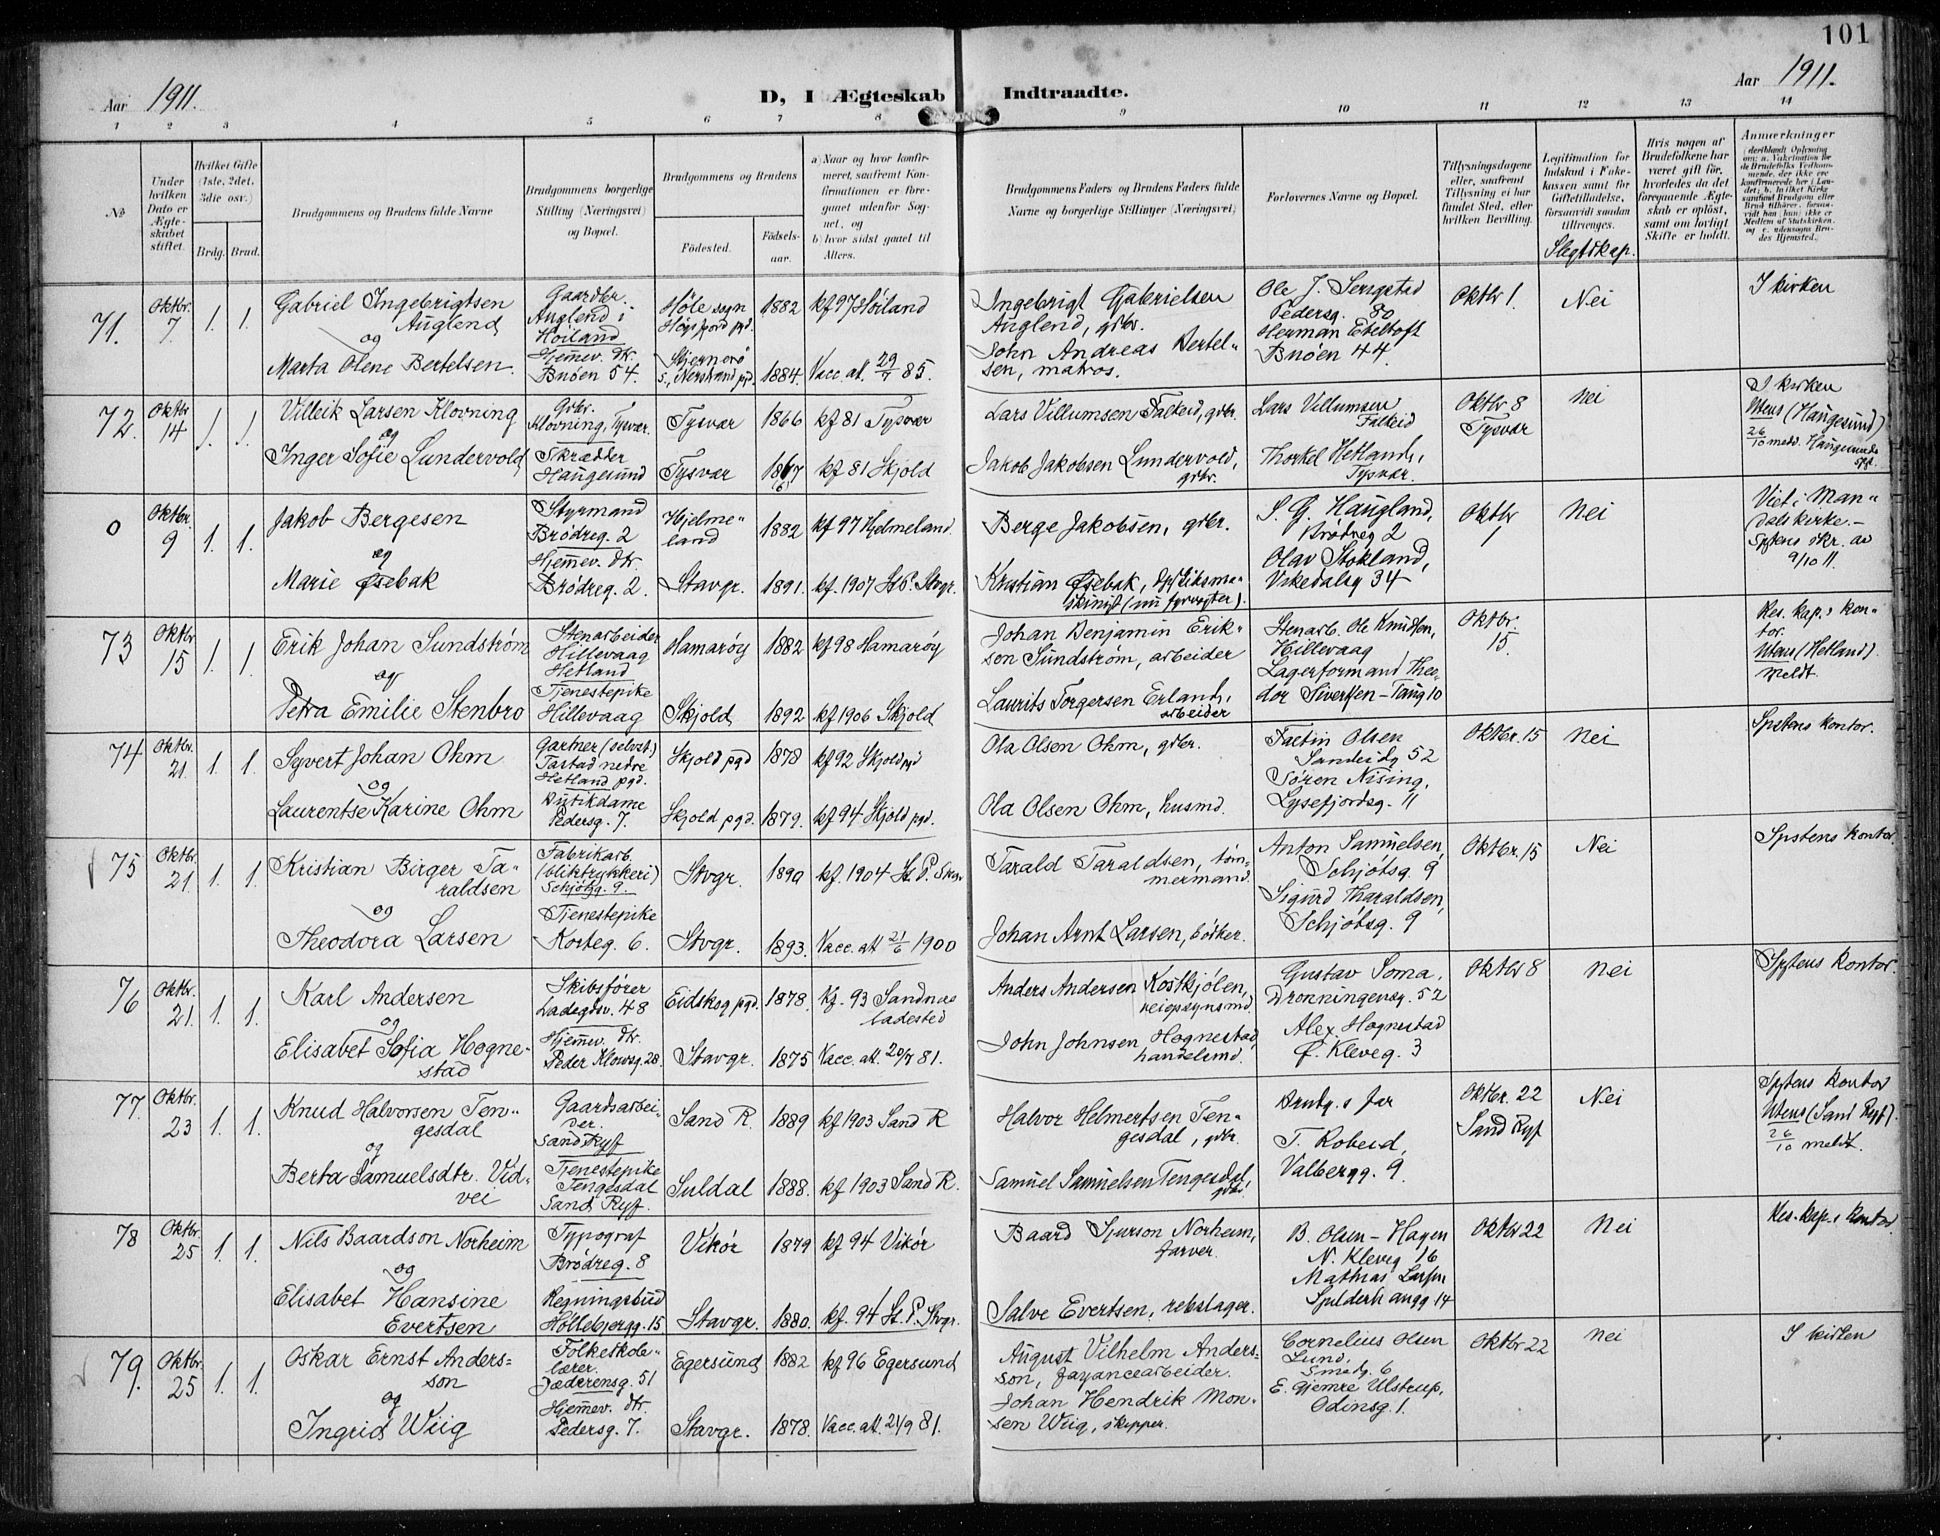 101
Aar 1911.
D, I Ægteskab Indtraadte.
Aar 1911.
1 2 3 4 5 6 7 8 9 10 11 12 13 14
No
Under hvilken Dato er Ægteskabet stiftet.
Hvilket Gifte (1ste, 2det, 3die osv.)
Brdg. Brud.
Brudgommens og Brudens fulde Navne
Brudgommens borgerlige Stilling (Næringsvei) og Bopæl.
Brudgommens og Brudens
Fødested.
Fødselsaar.
a) Naar og hvor konfirmeret, saafremt Konfirmationen er foregaaet udenfor Sognet, og
b) hvor sidst gaaet til Alters.
Brudgommens Faders og Brudens Faders fulde Navne og borgerlige Stillinger (Næringsvei)
Forlovernes Navne og Bopæl.
Tillysningsdagene eller, saafremt Tillysning ei har fundet Sted, efter hvilken Bevilling.
Legitimation for Indskud i Enkekassen samt for Giftetilladelse, forsaavidt saadan tiltrænges.
Slegtskap.
Hvis nogen af Brudefolkene har været gift før, hvorledes da det foregaaende Ægteskab er opløst, samt om lovligt Skifte er holdt.
Anmærkninger
71. Oktbr. 7 1. 1.
Gabriel Ingebrigtsen Auglend
og
Marta Olene Bertelsen.
Gaardbr. Auglend i Høiland
Hjemev. dtr. Buøen 54.
Høle sogn Høgsfjord pgd. 1882 kf 97 Høiland
Sjernerø s., Nerstrand pgd. 1884. Vacc. at. 29/7 85.
Ingebrigt Gabrielsen Auglend, gdbr.
John Andreas Bertelsen, matros.
Pedersg. 80
Herman Ebeltoft
Buøen 44
Oktbr 1. Nei I kirken
72. Oktbr 14 1. 1.
Villeik Larsen Klovning
og
Inger Sofie Lundervold
Gdbr. Klovning, Tysvær.
Skrædder Haugesund
Tysvær 1866 kf 81 Tysvær
Tysvær 1867 kf 81 Skjold
Lars Villumsen Falkeid, gdbr.
Jakob Jakobsen Lundervold, gdbr.
Lars Villumsen Falkeid
Thorkel Hetland, Tysvær.
Oktbr 8 Tysvær
Nei
I kirken
Utens (Haugesund)
26/10 medd. Haugesunds
0 Oktbr. 9 1. 1.
Jakob Bergesen
og
Marie Øsebak
Styrmand Brødreg. 2
Hjemev. dtr. Brødreg. 2.
Hjelmeland 1882 kf 97 Hjelmeland
Stavgr. 1891. kf. 1907 St. P. Stvgr.
Berge Jakobsen, gdbr.
Kristian Øsebak, (nu fyrvogter).
S. G. Haugland, Brødreg 2
Olav Stokland, Vikedalsg 34
Oktbr 1
Nei
Viet i Mandals kirke.-
Spstens skr. av 9/10 11.
73 Oktbr 15 1. 1.
Erik Johan Sundstrøm
og
Petra Emilie Stenbro
Stenarbeider Hillevaag Hetland
Tjenestepike Hillevaag
Hamarøy 1882 kf 98 Hamarøy
Skjold 1892 kf 1906 Skjold
Johan Benjamin Erikson Sundstrøm, arbeider
Laurits Torgersen Erland, arbeider
Stenarb. Ole Knudsen, Hillevaag
Lagerformand Theodor Sivertsen - Taug 10
Oktbr. 15.
Res. kap.s kontor.
Utens (Hetland).
meldt.
74 Oktbr. 21 1. 1.
Syvert Johan Ohm
og
Laurentse Karine Ohm
Gartner (selvst.) Tastad nedre Hetland pgd.
Butikdame Pedersg. 7.
Skjold pgd 1878 kf 92 Skjold pgd
Skjold pgd. 1879. kf 94 Skjold pgd.
Ola Olsen Ohm, gdbr.
Ola Olsen Ohm, husmd.
Olsen Sandeidg 52
Søren Nising, Lysefjordsg. 11
Oktbr. 15 Nei Spstens kontor.
75 Oktbr. 21 1. 1.
Kristian Birger Taraldsen
og
Theodora Larsen
Fabrikarb. (bliktrykkeri) Schjøtsg. 9.
Tjenestepike Korteg. 6.
Stvgr. 1890 kf. 1904 St. P. Stvgr
Stvgr. 1893. Vacc. att 21/6 1900
Tarald Taraldsen, tømmermand.
Johan Arnt Larsen, bødker.
Anton Samuelsen, Schjøtsg. 9
Sigurd Tharaldsen, Schjøtsg. 9
Oktbr. 15 Nei Spstens kontor
76 Oktbr. 21 1. 1.
Karl Andersen
og
Elisabet Sofia Hognestad
Skibsfører Ladegdsv. 48
Hjemev. dtr. Peder Klowsg. 28.
Eidskog pgd. 1878. kf. 93 Sandnes ladested
Stavgr. 1875 Vacc. att. 20/7 81.
Anders Andersen Kostkjølen, veiopsynsmd.
John Johnsen Hognestad, handelsmd.
Gustav Soma, Dronningensg. 52
Alex Hognestad Ø. Kleveg. 3
Oktbr 8 Nei Spstens kontor.
77. Oktbr. 23 1. 1.
Knud Halvorsen Tengesdal
og
Berta Samuelsdtr. Vidvei
Gaardsarbeider. Sand Ryf
Tjenestepike Tengesdal Sand Ryf.
Sand R. 1889 kf 1903 Sand R
Suldal 1888. kf 1903 Sand R.
Halvor Helmertsen Tengesdal, gdbr.
Samuel Samuelsen Tengesdal, gdbr.
Brudg.s far
T. Robeid, Valbergg. 9.
Oktbr. 22 Sand Ryf
Nei
Spstens kontor
Utens (Sand Ryf).
26/10 meldt.
78 Oktbr. 25 1. 1.
Nils Baardson Norheim
og
Elisabet Hansine Evertsen
Typograf Brødreg. 8
Regningsbud Høllebjergg. 15
Vikør 1879 kf 94 Vikør
Stavgr. 1880. kf. 94 St. P. Stvgr.
Baard Sjurson Norheim, farver.
Salve Evertsen, rebslager.
B. Olsen - Hagen N. Kleveg 16
Mathias Larsen
Oktbr 22 Nei Res. kap.s kontor
79. Oktbr. 25 1. 1.
Oskar Ernst Andersson
og
Ingrid Wiig
Folkeskolelærer. Jæderensg. 51
Hjemev. dtr. Pedersg. 7.
Egersund 1882 kf 96 Egersund
Stavgr. 1878. Vacc. att. 21/9 81.
August Vilhelm Andersson, fayancearbeider.
Johan Hendrik Monsen Wiig, skipper.
Cornelius Olsen Lund, Smedg. 6
E. Gjemre Ulstrup, Odinsg. 1.
Oktbr 22 Nei I kirken